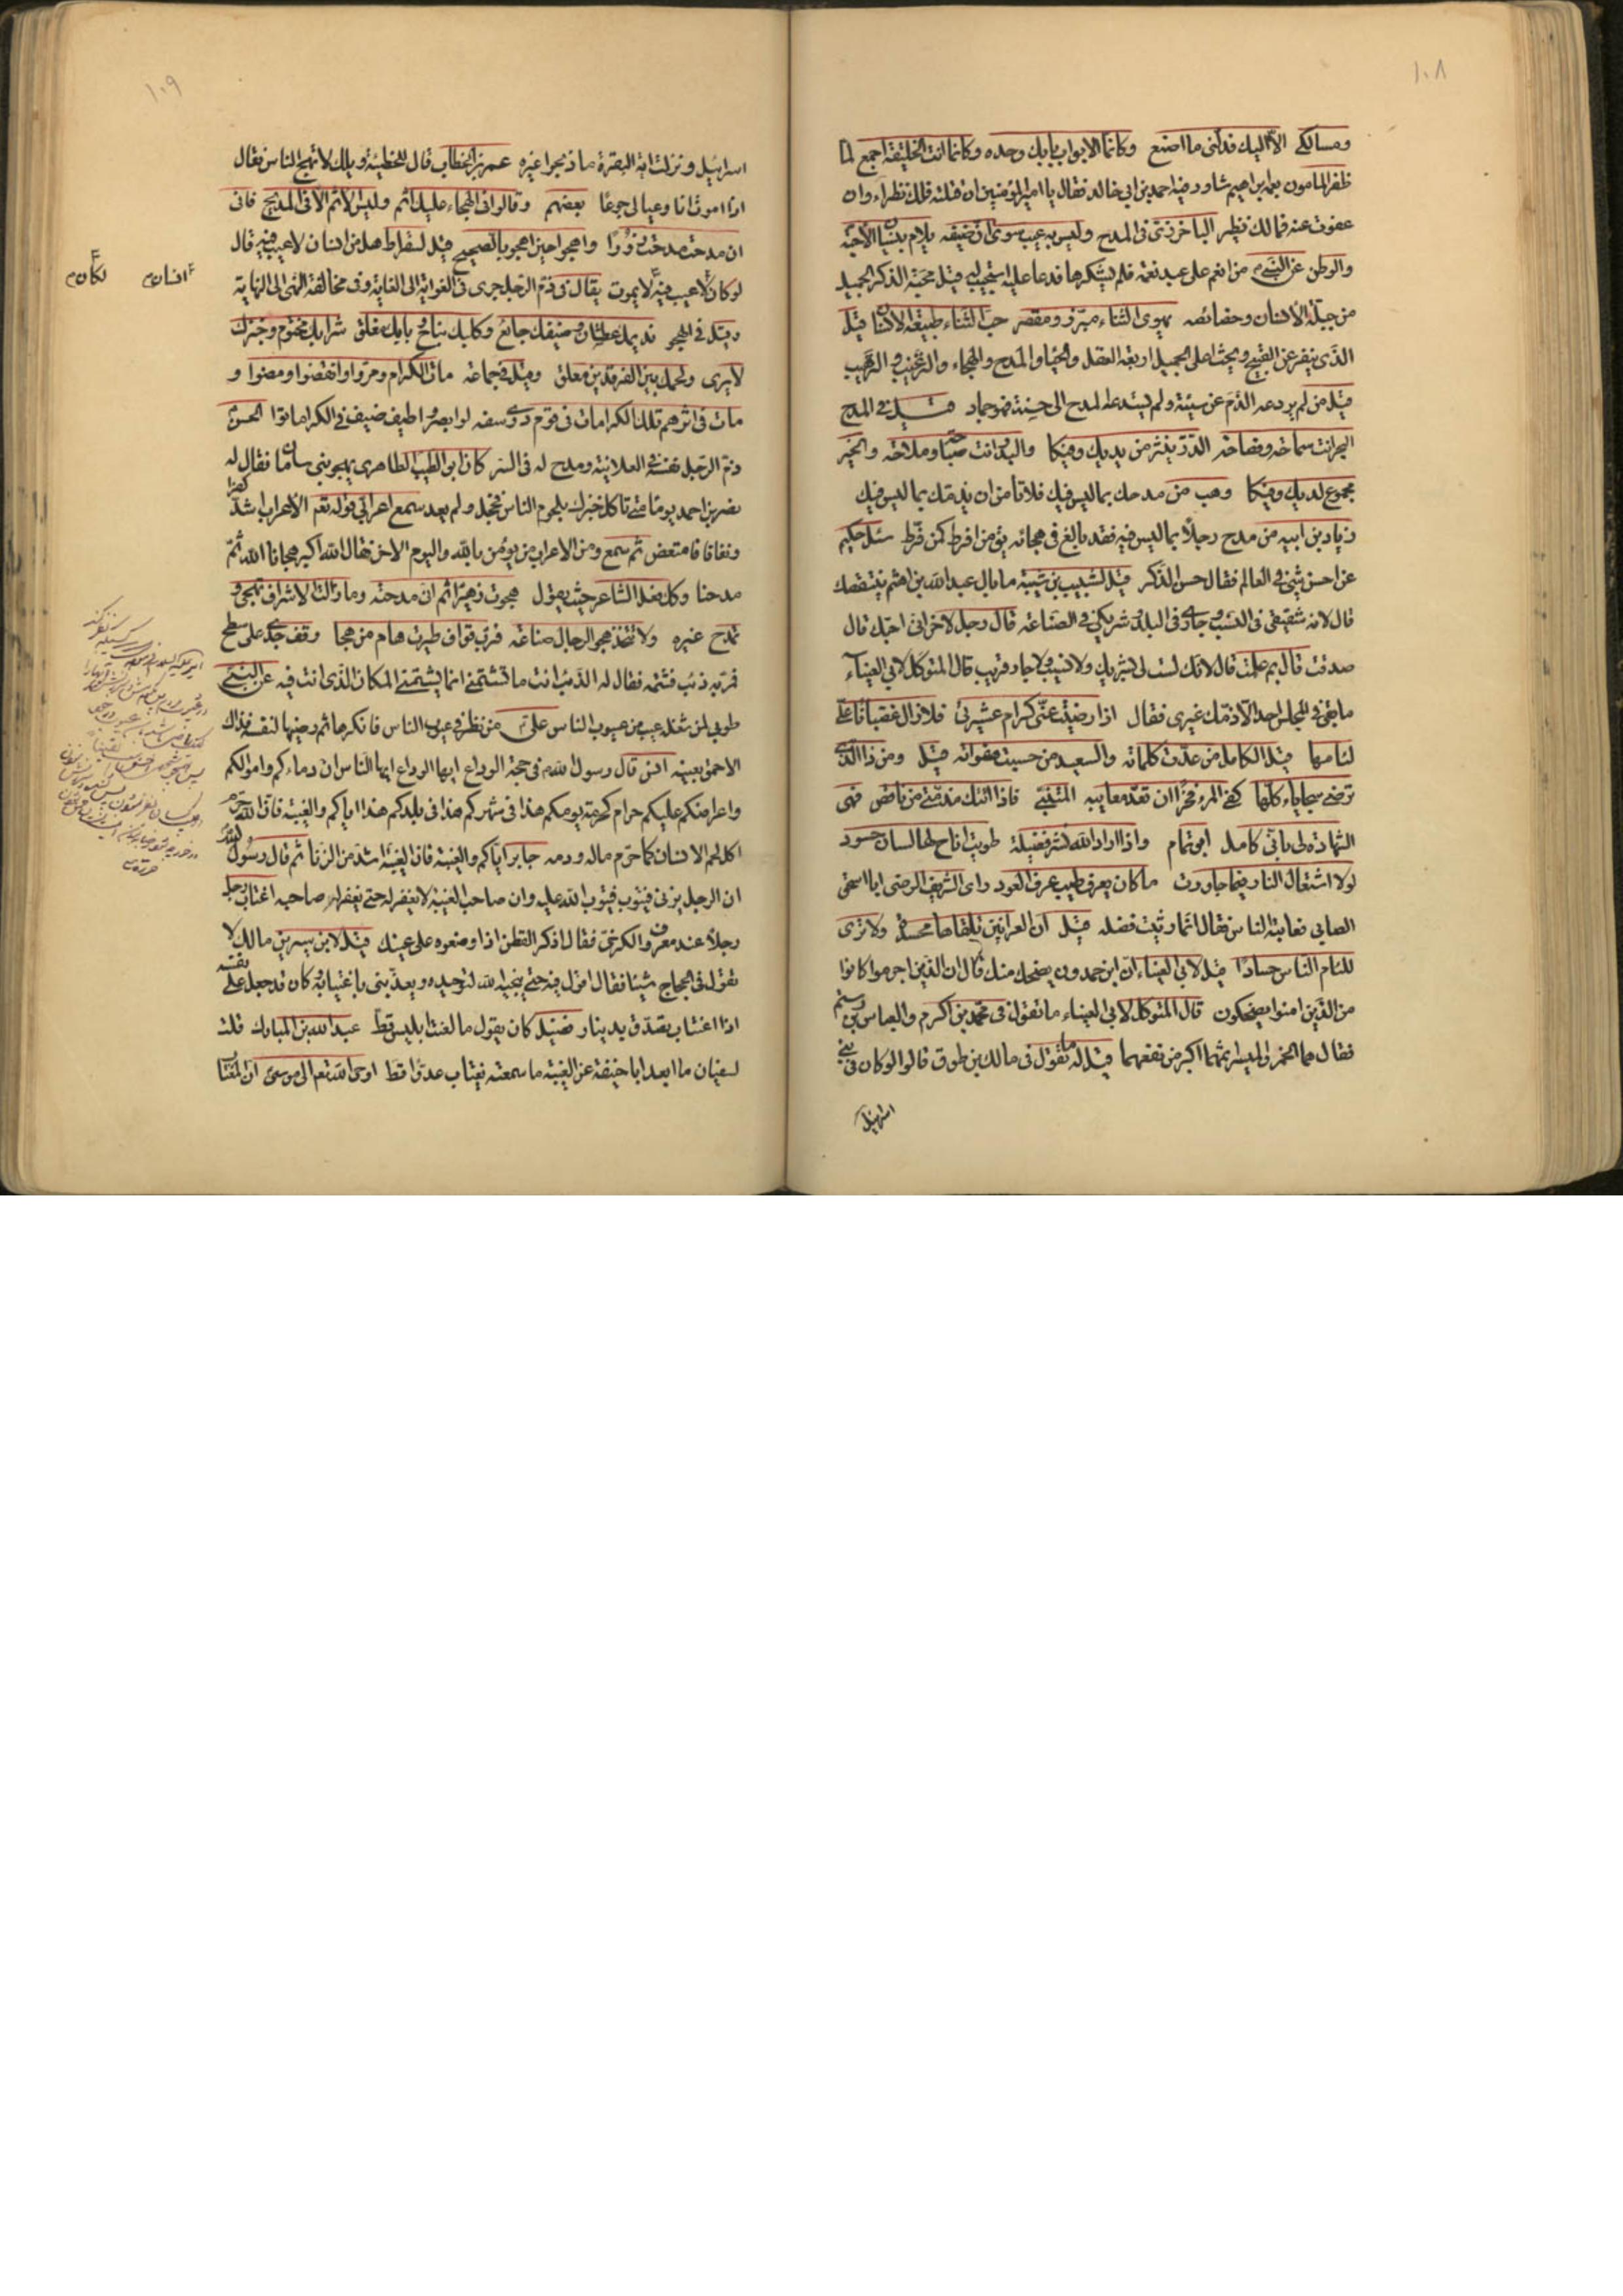 ١٠٨
ومسالكى الا اليك فدلنى ما اصنع وكانما الابواب بابك وحده وكانما انت الخليقة اجمع لما
ظفر المامون بعمه ابراهيم شاور فيه احمد بن ابى خالد فقال يا امير المؤمنين ان قتلته فلك نظراء وان
عفوت عنه فمالك نظير الباخرزى فى المدح وليس به عيب سوى ان ضيفه يلام بنسيان الاحبة
والوطن عن النبى من انعم على عبد نعمة فلم يشكرها فدعا عليه استجيب له قيل محبة الذكر الجميل
من جبلة الانسان وخصائصه يهوى الثناء مبرز ومقصر حب الثناء طبيعة الانسان قيل
الذى ينفر عن القبيح ويحث على الجميل اربعة العقل والحياء والمدح والهجاء والترغيب والترهيب
قيل من لم يردعه الذم عن سيئة ولم يستدعه المدح الى حسنة فهو جماد قيل فى المدح
البحر انت سماحة وفصاحة الدر ينثر من يديك وفيكا والبدر انت صباحة وملاحة والخير
مجموع لديك وفيكا وهب من مدحك بما ليس فيك فلا تامن ان يذمك بما ليس فيك
زياد بن ابيه من مدح رجلا بما ليس فيه فقد بالغ فى هجائه يق من افرط كمن فرط سئل حكيم
عن احسن شىء فى العالم فقال حسن الذكر قيل لشبيب بن شيبة ما بال عبد الله بن اهتم ينتقصك
قال لانه شقيقى فى النسب وجارى فى البلد وشريكى فى الصناعة قال رجل لاخر انى احبك قال
صدقت قال بم علمت قال لانك لست لى بشريك ولا نسيب ولا جار قريب قال المتوكل لابى العيناء
ما بقى فى المجلس احد الا ذمك غيرى فقال اذا رضيت عنى كرام عشيرتى فلا زال غضبانا على
لئامها قيل الكامل من عدت كلماته والسعيد من حسبت هفواته قيل ومن ذا الذى
ترضى سجاياه كلها كفى المرء فخرا ان تعد معايبه المتنبى فاذا اتتك مذمتى من ناقص فهى
الشهادة لى بانى كامل ابو تمام واذا اراد الله نشر فضيلة طويت اتاح لها لسان حسود
لولا اشتعال النار فيما جاورت ما كان يعرف طيب عرف العود راى الشريف الرضى ابا اسحق
الصابى فعاتبه الناس فقال انما رثيت فضله قيل ان العرانين تلقاها محسدة ولا ترى
للئام الناس حسادا قيل لابى العيناء ان ابن حمدون يضحك منك قال ان الذين اجرموا كانوا
من الذين امنوا يضحكون قال المتوكل لابى العيناء ما تقول فى محمد بن اكرم والعباس بن رستم
فقال هما الخمر والميسر اثمهما اكبر من نفعهما قيل له ما تقول فى مالك بن طوق قال لو كان فى بنى
اسرائيل
١٠٩
اسرائيل ونزلت اية البقرة ما ذبحوا غيره عمر بن الخطاب قال للحطيئة ويلك لا تهج الناس فقال
اذا اموت انا وعيالى جوعا بعضهم وقالوا فى الهجاء عليك اثم وليس الاثم الا فى المديح فانى
ان مدحت مدحت زورا واهجو حين اهجو بالصحيح قيل لسقراط هل من انسان لا عيب فيه قال
لو كان لا عيب فيه لا يموت يقال فى ذم الرجل جرى فى الغواية الى الغاية وفى مخالفة النهى الى النهاية
وقيل فى الهجو نديمك عطشان وضيفك جائع وكلبك نباح وبابك مغلق شرابك مختوم وخبزك
لا يرى ولحمك بين الفرقدين معلق وقيل فى جماعة مات الكرام ومروا وانقضوا ومضوا و
مات فى اثرهم تلك الكرامات فى قوم ذوى سفه لو ابصروا طيف ضيف فى الكرا ماتوا الحسن
ذم الرجل نفسه فى العلانية ومدح له فى السر كان ابو الطيب الطاهرى يهجو بنى سامان فقال له
نصر بن احمد يوما متى تاكل خبزك بلحوم الناس فخجل ولم يعد سمع اعرابى قوله تعم الاعراب اشد كفرا
ونفاقا فامتعض ثم سمع ومن الاعراب من يؤمن بالله واليوم الاخر فقال الله اكبر هجانا الله ثم
مدحنا وكل فعل الشاعر حيث يقول هجوت زهيرا ثم انى مدحته وما زالت الاشراف تهجى و
تمدح غيره ولا تتخذ هجو الرجال صناعة فرب قواف طيرت هام من هجا وقف جدى على سطح
فمر به ذئب فشتمه فقال له الذئب انت ما تشتمنى انما يشتمنى المكان الذى انت فيه عن النبى
طوبى لمن شغله عيبه من عيوب الناس على من نظر فى عيوب الناس فانكرها ثم رضيها لنفسه فذاك
الاحمق بعينه انس قال رسول الله فى حجة الوداع ايها الناس ان دماءكم واموالكم
واعراضكم عليكم حرام كحرمة يومكم هذا فى شهركم هذا فى بلدكم هذا اياكم والغيبة فان الله حرم
اكل لحم الانسان كما حرم ماله ودمه جابر اياكم والغيبة فان الغيبة اشد من الزنا ثم قال رسول الله
ان الرجل يزنى فيتوب فيتوب الله عليه وان صاحب الغيبة لا يغفر له حتى يغفر له صاحبه اغتاب رجل
رجلا عند معروف الكرخى فقال اذكر القطن اذا وضعوه على عينك قيل لابن سيرين مالك لا
تقول فى الحجاج شيئا فقال اقول فيه حتى ينجيه الله لتوحيده ويعذبنى باغتيابه وكان قد جعل على نفسه
اذا اغتاب تصدق بدينار فضيل كان يقول ما لعنت ابليس قط عبد الله بن المبارك قلت
لسفيان ما ابعد ابا حنيفة عن الغيبة ما سمعته يغتاب عدوا قط اوحى الله تعم الى موسى ان المغتاب
انسان لكان